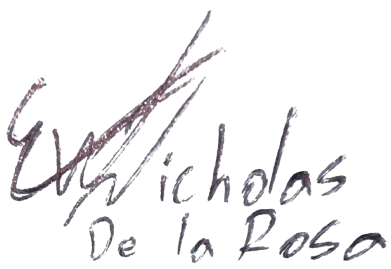 Nicholas
De la Rosa